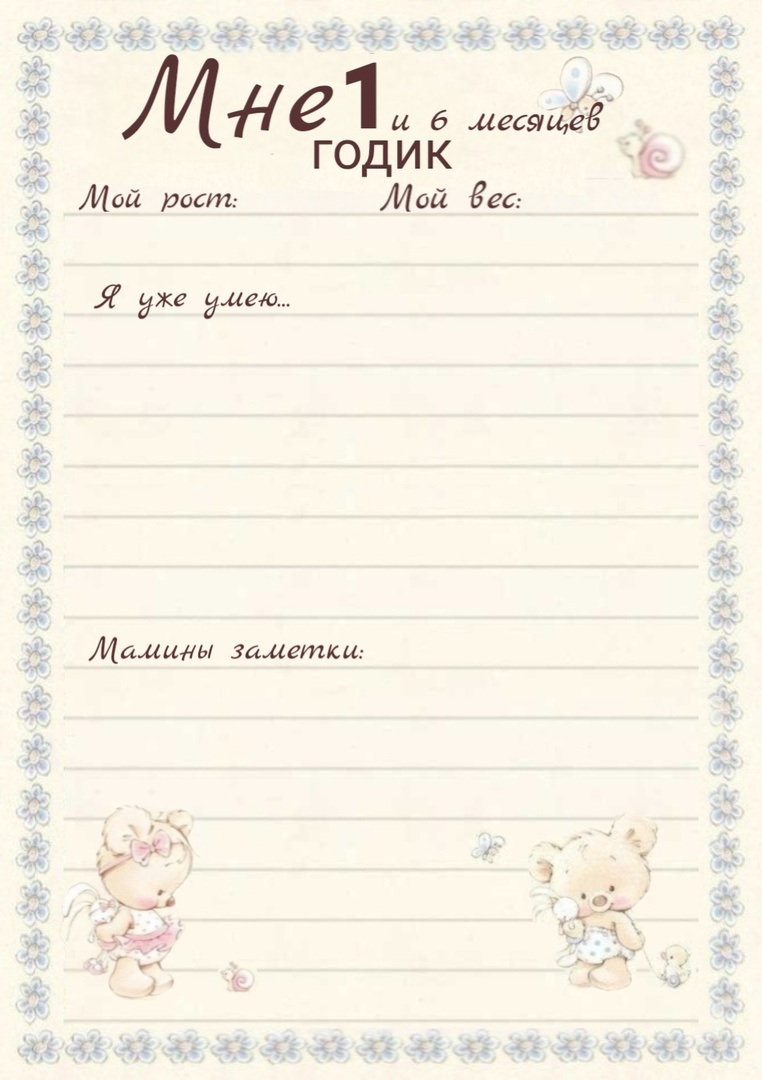 Мне 1 и 6 месяцев
годик
Мой рост: Мой вес:
Я уже умею...
Мамины заметки: